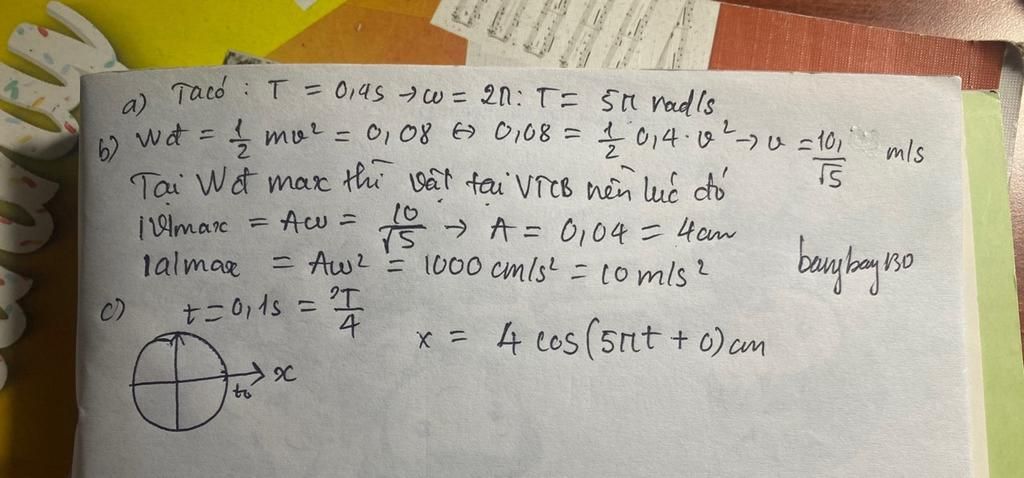 a) Ta có : T = 0,4s → ω = 2π : T = 5π rad/s
b) Wđ = 1/2 mv² = 0,08 ⇔ 0,08 = 1/2 0,4 . v² → v = 10/√5 m/s
Tại Wđ max thì vật tại VTCB nên lúc đó
|v|max = Aω = 10/√5 → A = 0,04 = 4cm
|a|max = Aω² = 1000 cm/s² = 10 m/s²
baybay130
c) t = 0,1s = T/4
x = 4 cos(5πt + 0) cm
x
t₀